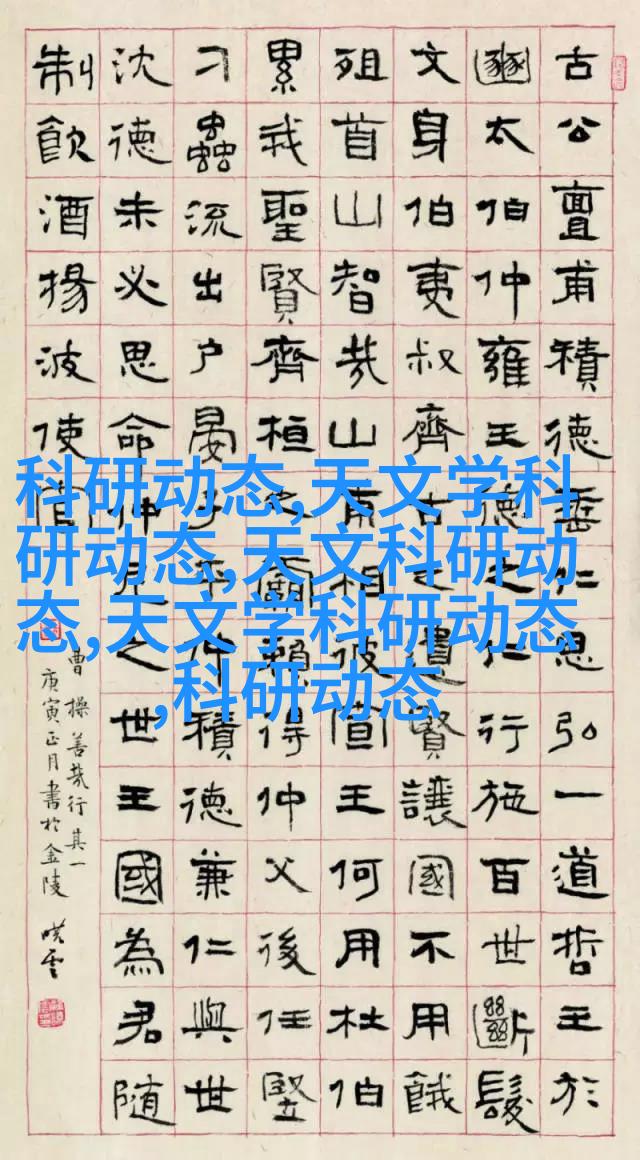 古公亶甫積德垂仁思弘一道哲王於
豳太伯仲雍王德之仁行施百世斷髮
文身伯夷叔齊古之遺賢讓國不用餓
殂首山智哉山甫相彼宣王何用杜伯
累我聖賢齊桓之霸賴得仲父後任豎
刁蟲流出戶晏子平仲積德兼仁與世
沈德未必思命仲尼之世王國為君隨
制飲酒揚波使官
曹操善哉行其一
庚寅正月書於金陵
科研动态,天文学科
研动态,天文科研动
态,天文学科研动态
,科研动态